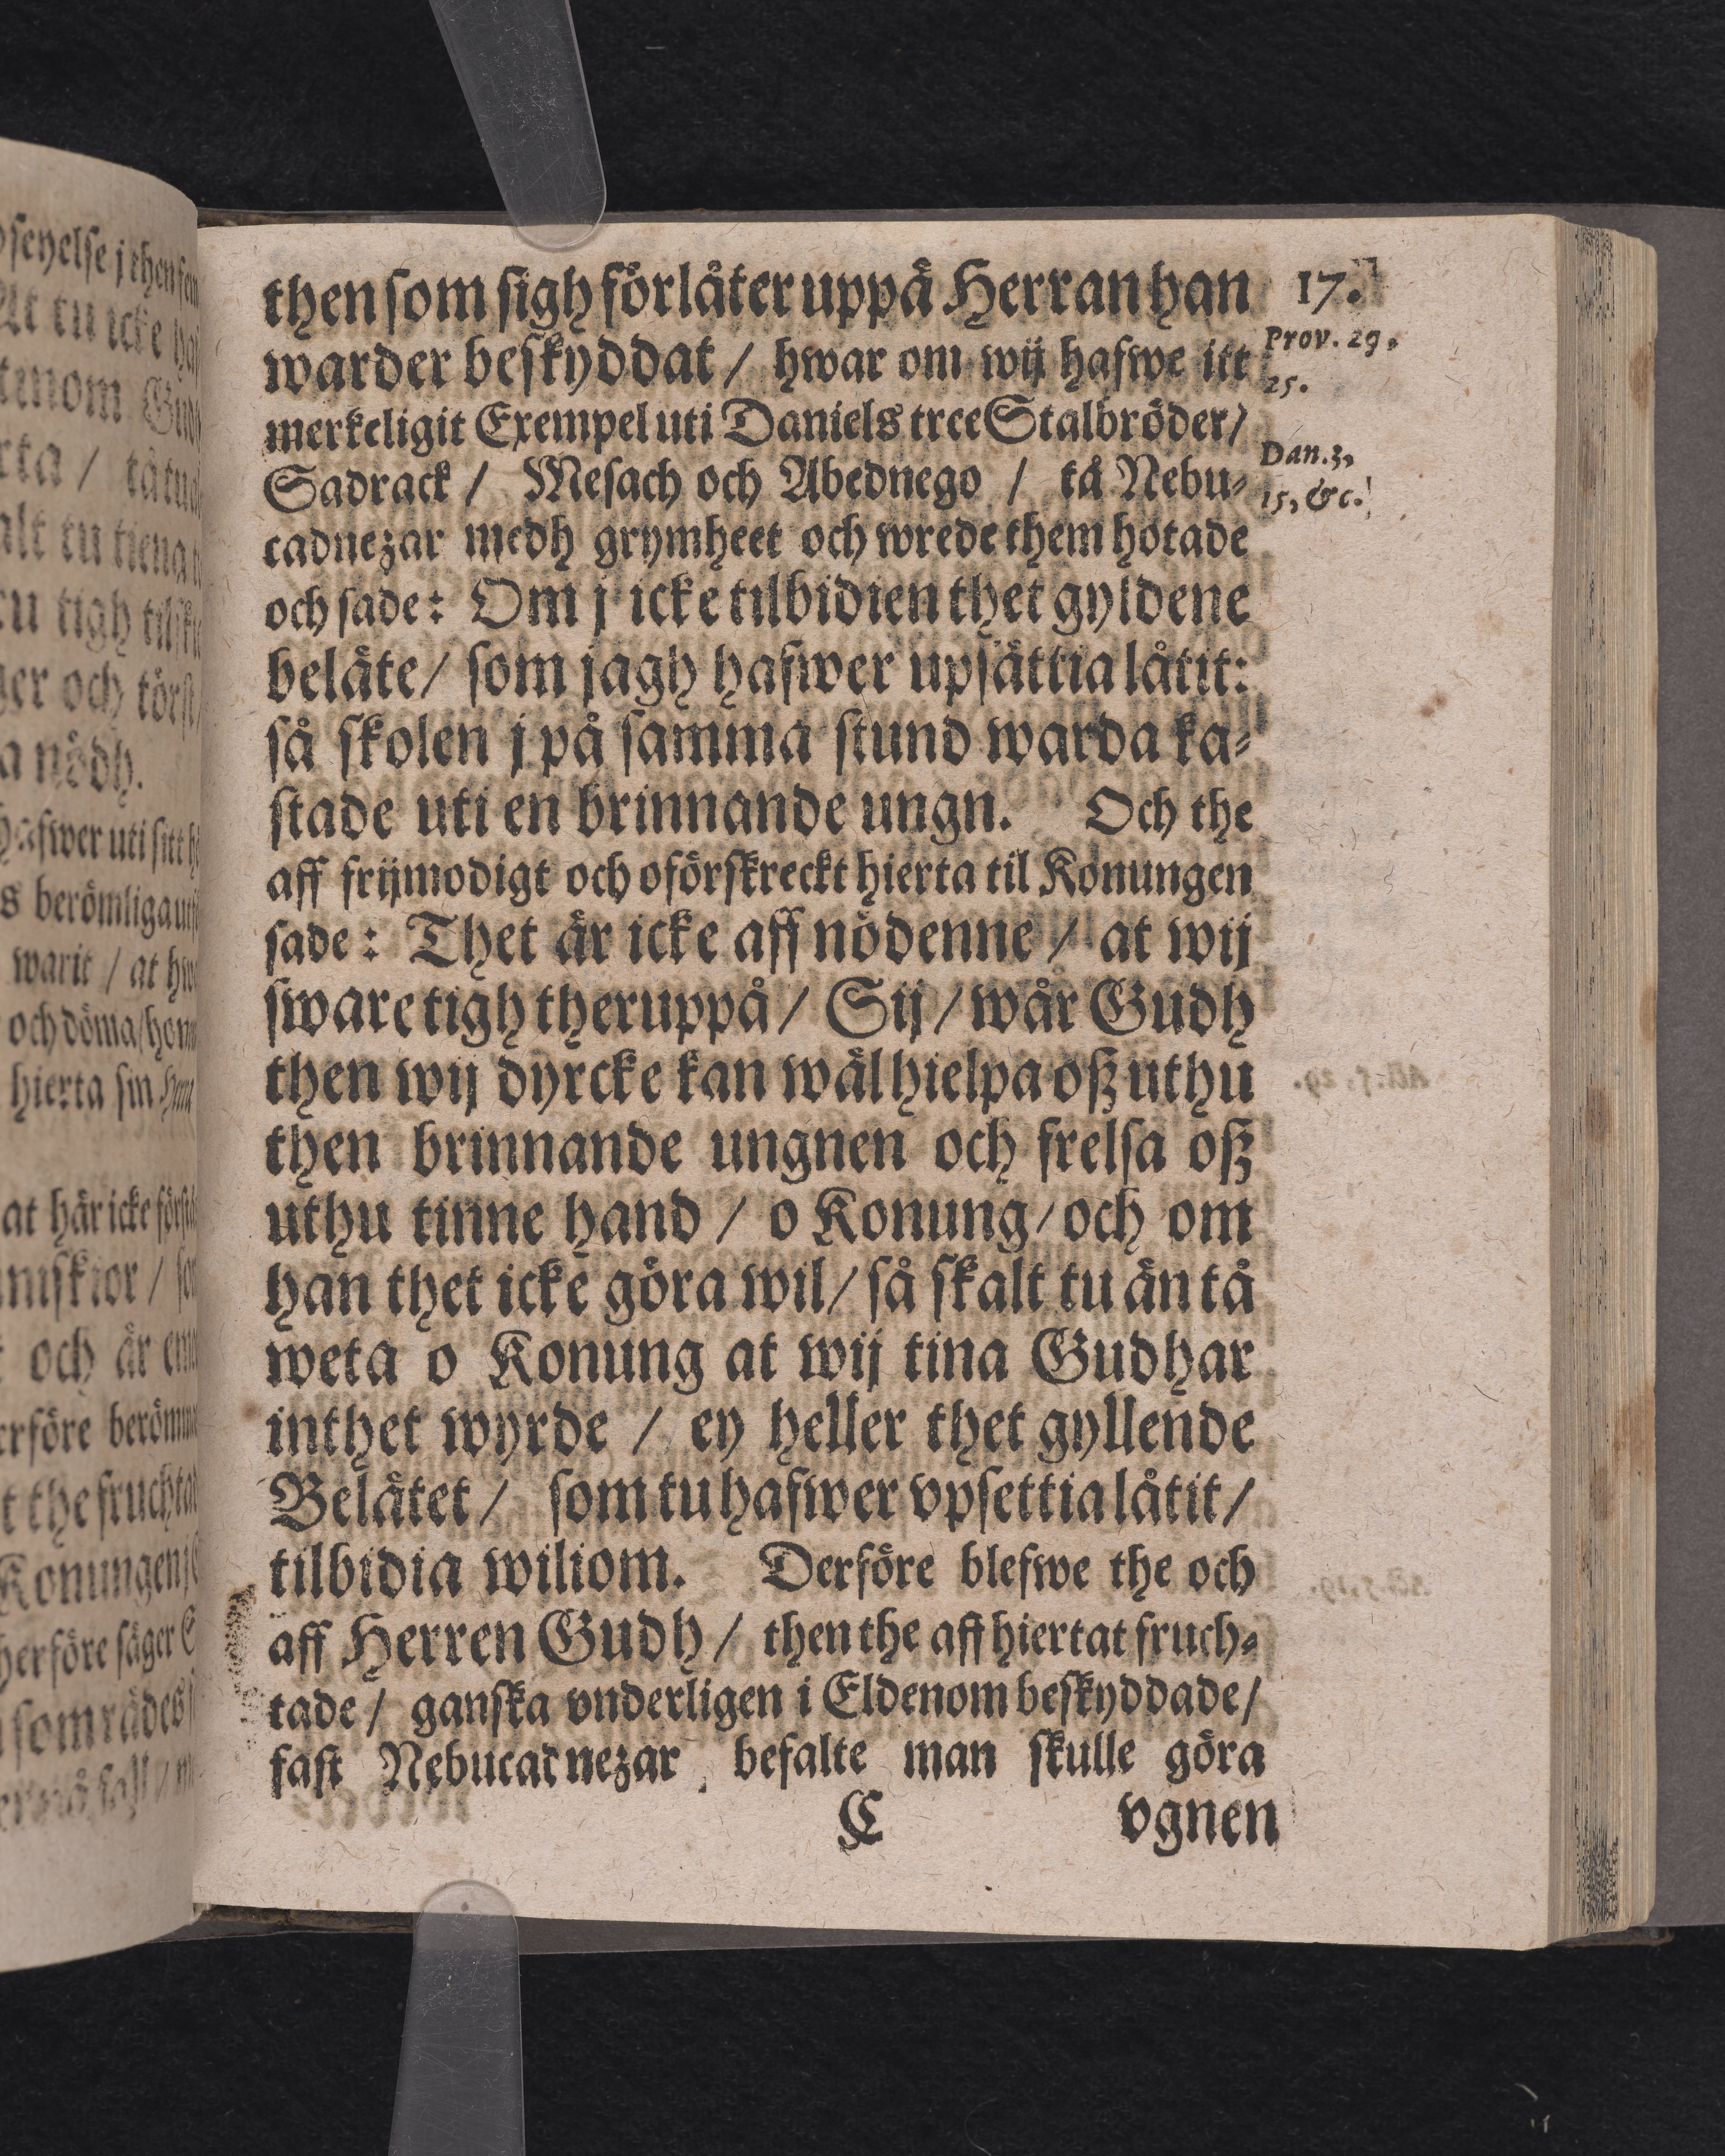 then som sigh förlåter uppå Herran han
17.
warder beskyddat / hwar om wij hafwe itt
Prov. 29.
25.
merkeligit Exempel uti Daniels tree Stalbröder /
Sadrack / Mesach och Abednego / tå Nebu-
Dan. 3,
15, &c.
cadnezar medh grymheet och wrede them hotade
och sade: Om j icke tilbidien thet gyldene
beläte / som jagh hafwer upsättia låtit:
så skolen j på samma stund warda ka-
stade uti en brinnande ungn. Och the
aff frijmodigt och oförskreckt hierta til Konungen
sade: Thet är icke aff nödenne / at wij
sware tigh theruppå / Sij / wår Gudh
then wij dyrcke kan wäl hielpa oß uthu
then brinnande ungnen och frelsa oß
uthu tinne hand / o Konung / och om
han thet icke göra wil / så skalt tu än tå
weta o Konung at wij tina Gudhar
inthet wyrde / ey heller thet gyllende
Belätet / som tu hafwer vpsettia låtit /
tilbidia wiliom. Derföre blefwe the och
aff Herren Gudh / then the aff hiertat fruch-
tade / ganska vnderligen i Eldenom beskyddade /
fast Nebucadnezar befalte man skulle göra
C vgnen